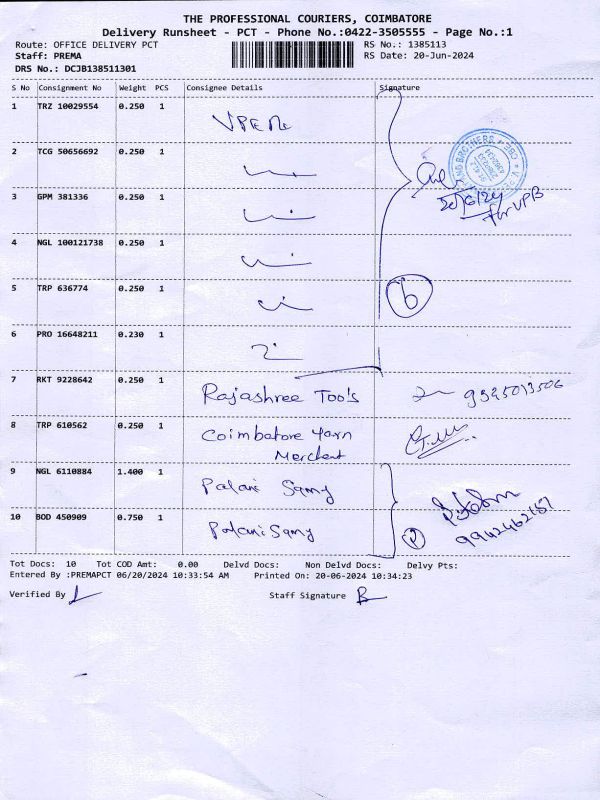 THE PROFESSIONAL COURIERS, COIMBATORE
Delivery Runsheet - PCT - Phone No.:0422-3505555 - Page No.:1
Route: OFFICE DELIVERY PCT
RS No.: 1385113
Staff: PREMA
RS Date: 20-Jun-2024
DRS No.: DCJB138511301
S No Consignment No Weight PCS Consignee Details Signature
1 TRZ 10029554 0.250 1
2 TCG 50656692 0.250 1
3 GPM 381336 0.250 1
for VPB
4 NGL 100121738 0.250 1
5 TRP 636774 0.250 1
6
6 PRO 16648211 0.230 1
7 RKT 9228642 0.250 1 Rajashree Tools
8 TRP 610562 0.250 1 Coimbatore Yarn
Merchent
9 NGL 6110884 1.400 1 Palani Samy
10 BOD 450909 0.750 1 Palani Samy
2
Tot Docs: 10 Tot COD Amt: 0.00 Delvd Docs: Non Delvd Docs: Delvy Pts:
Entered By :PREMAPCT 06/20/2024 10:33:54 AM Printed On: 20-06-2024 10:34:23
Verified By Staff Signature